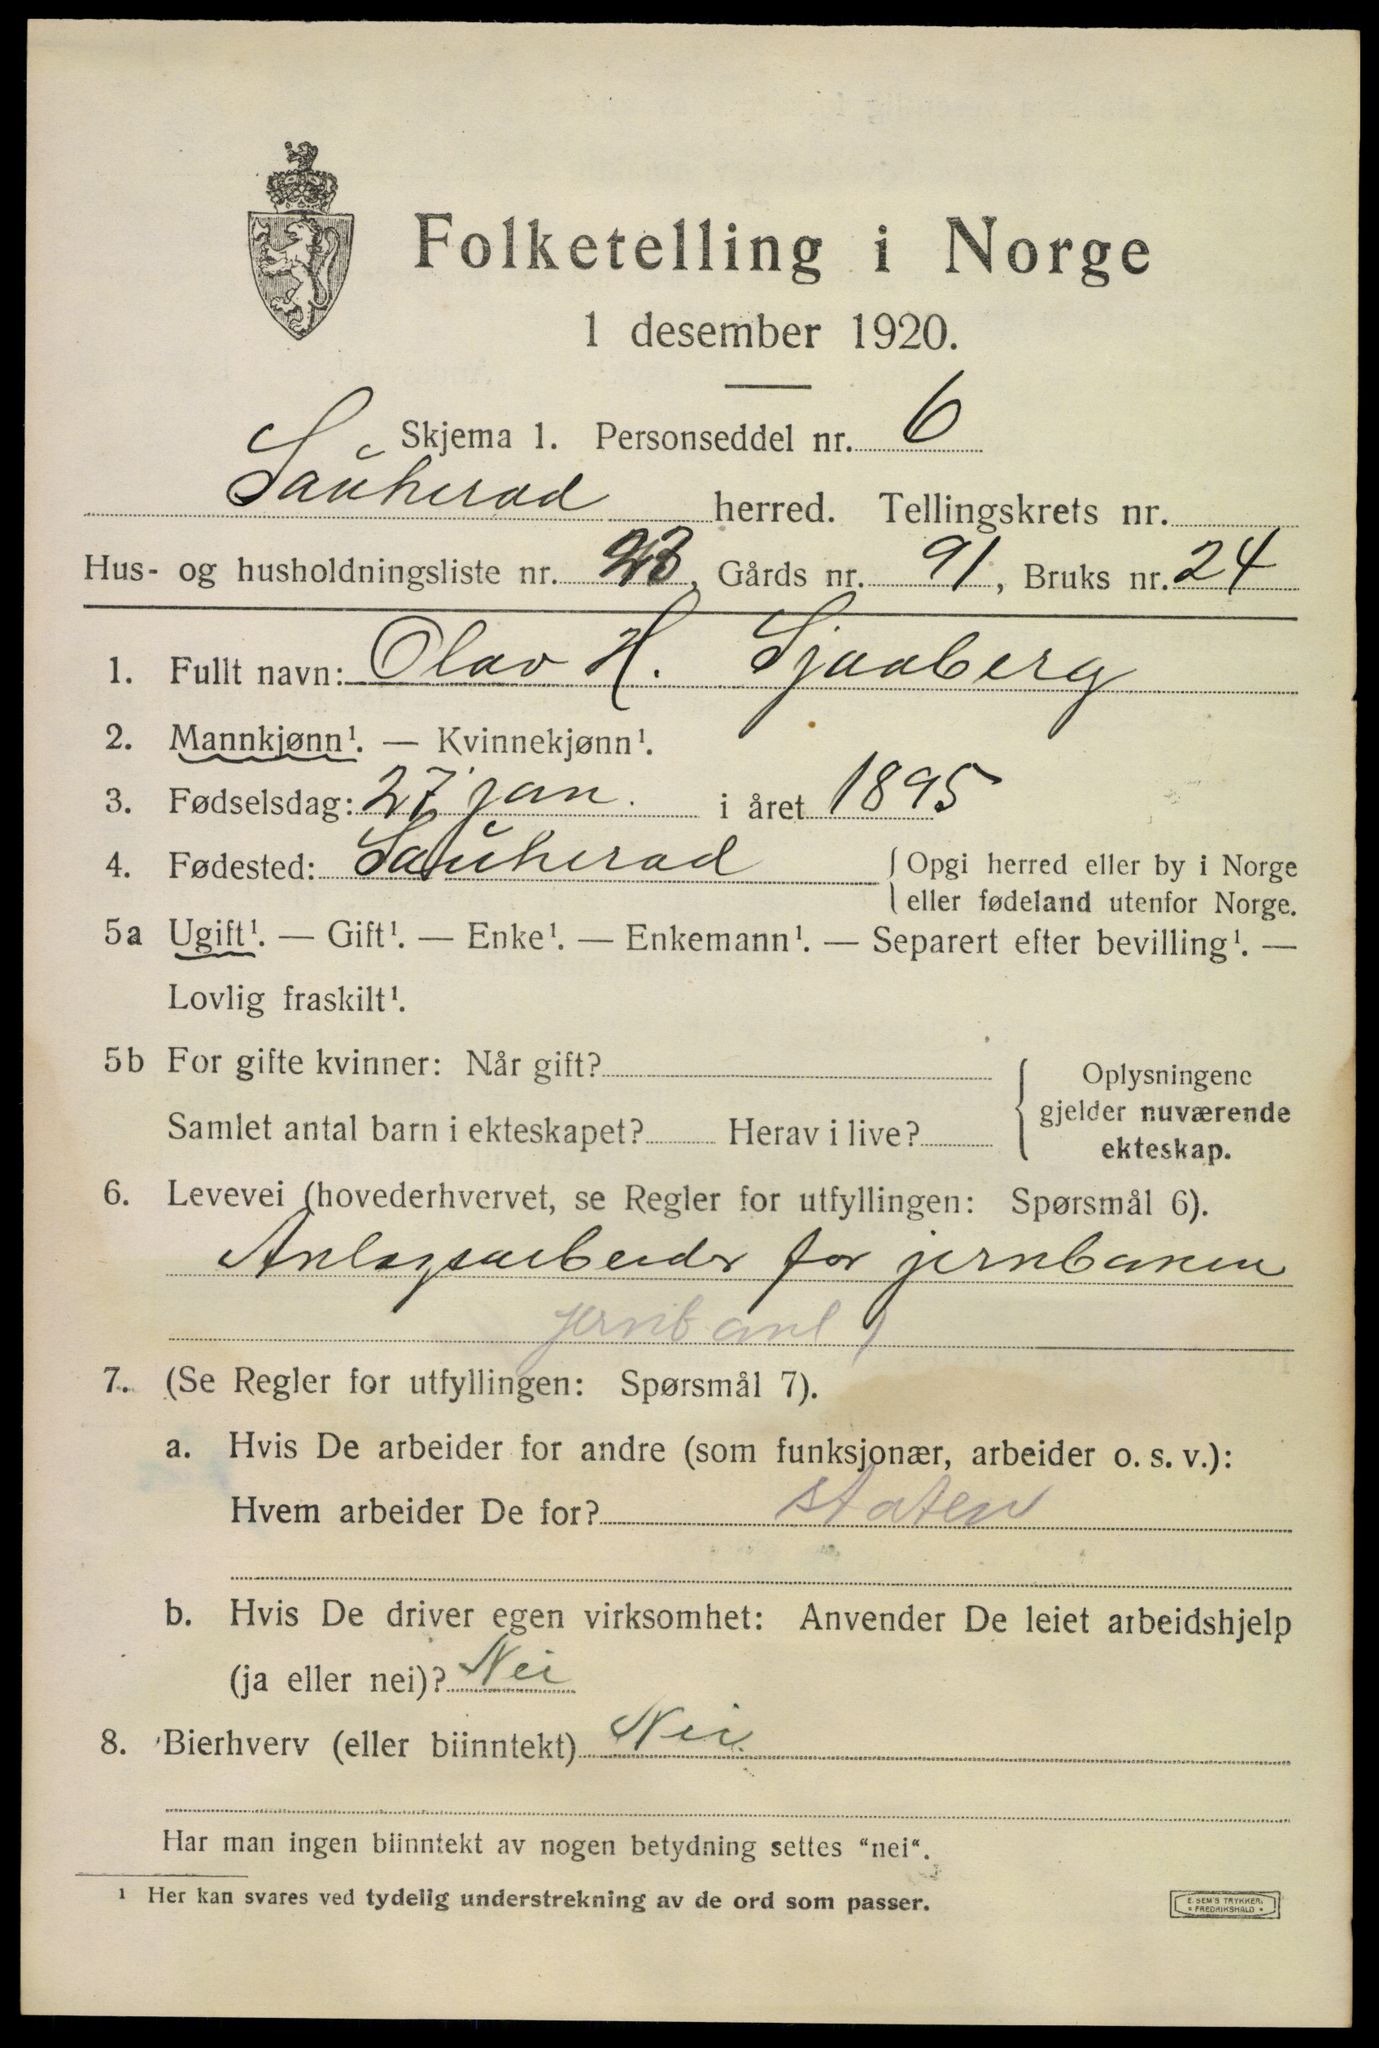 Folketelling i Norge
1 desember 1920.
Skjema 1. Personseddel nr. 6
Sauherad herred. Tellingskrets nr.
Hus- og husholdningsliste nr. 23, Gårds nr. 91, Bruks nr. 24
1. Fullt navn: Olav H. Sjaaberg
2. Mannkjønn¹. — Kvinnekjønn¹.
3. Fødselsdag: 27 jan. i året 1895
4. Fødested: Sauherad { Opgi herred eller by i Norge
eller fødeland utenfor Norge.
5a Ugift¹. — Gift¹. — Enke¹. — Enkemann¹. — Separert efter bevilling¹. —
Lovlig fraskilt¹.
5b For gifte kvinner: Når gift?
Samlet antal barn i ekteskapet? Herav i live?
Oplysningene
gjelder nuværende
ekteskap.
6. Levevei (hovederhvervet, se Regler for utfyllingen: Spørsmål 6).
Anlegsarbeider for jernbanen
jernbanl
7. (Se Regler for utfyllingen: Spørsmål 7).
a. Hvis De arbeider for andre (som funksjonær, arbeider o. s. v.):
Hvem arbeider De for? staten
b. Hvis De driver egen virksomhet: Anvender De leiet arbeidshjelp
(ja eller nei)? Nei
8. Bierhverv (eller biinntekt) Nei.
Har man ingen biinntekt av nogen betydning settes "nei".
¹ Her kan svares ved tydelig understrekning av de ord som passer.
E. SEM'S TRYKKERI
FREDRIKSHALD